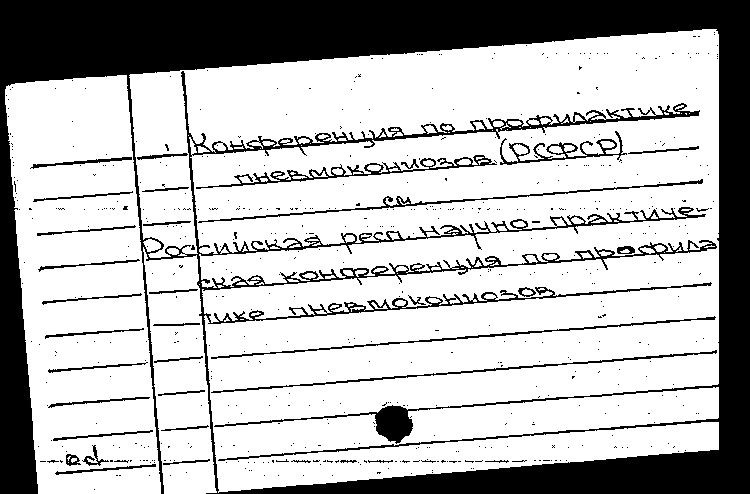 Конференция по профилактике
пневмокониозов (РСФСР)
см.
Российская респ. научно-практиче-
ская конференция по профила
тике пневмокониозов.
ad